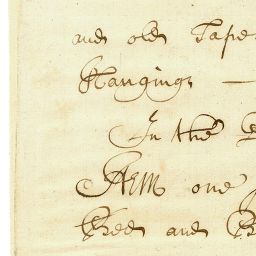 and old Tape
Hanging, —
In the
Item one
Bed and B